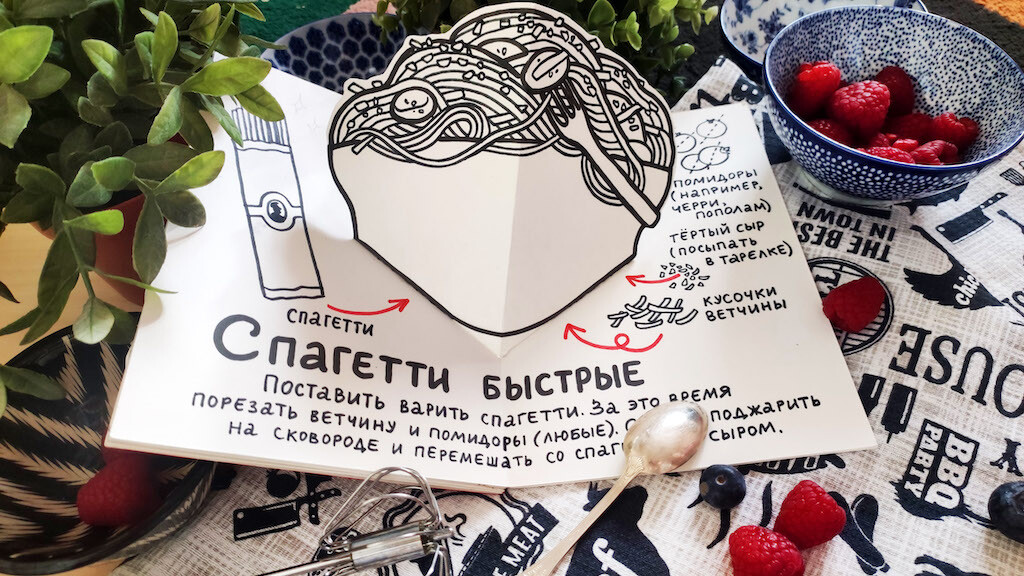 ПОМИДОРЫ
(НАПРИМЕР,
ЧЕРРИ,
ПОПОЛАМ)
ТЁРТЫЙ СЫР
(ПОСЫПАТЬ
В ТАРЕЛКЕ)
КУСОЧКИ
ВЕТЧИНЫ
СПАГЕТТИ
СПАГЕТТИ БЫСТРЫЕ
ПОСТАВИТЬ ВАРИТЬ СПАГЕТТИ. ЗА ЭТО ВРЕМЯ
ПОРЕЗАТЬ ВЕТЧИНУ И ПОМИДОРЫ (ЛЮБЫЕ). ПОДЖАРИТЬ
НА СКОВОРОДЕ И ПЕРЕМЕШАТЬ СО СЫРОМ.
THE BEST
IN TOWN
BBQ
PARTY
MEAT